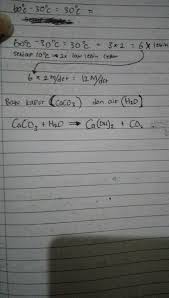 60°C - 30°C = 30°C =
60°C - 30°C = 30°C = 3 × 2 = 6 × lebih
setiap 10°C → 2x lebih cepat
6 × 2 M/det = 12 M/det
Batu kapur (CaCO3) dan air (H2O)
CaCO3 + H2O → Ca(OH)2 + CO2